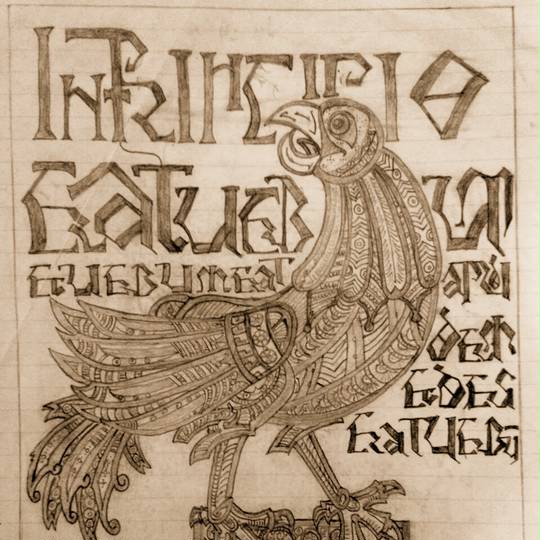 INPRINCIPIO
ERATUERBUM
ETUERBUMERAT APUD
ERATUERBŪ